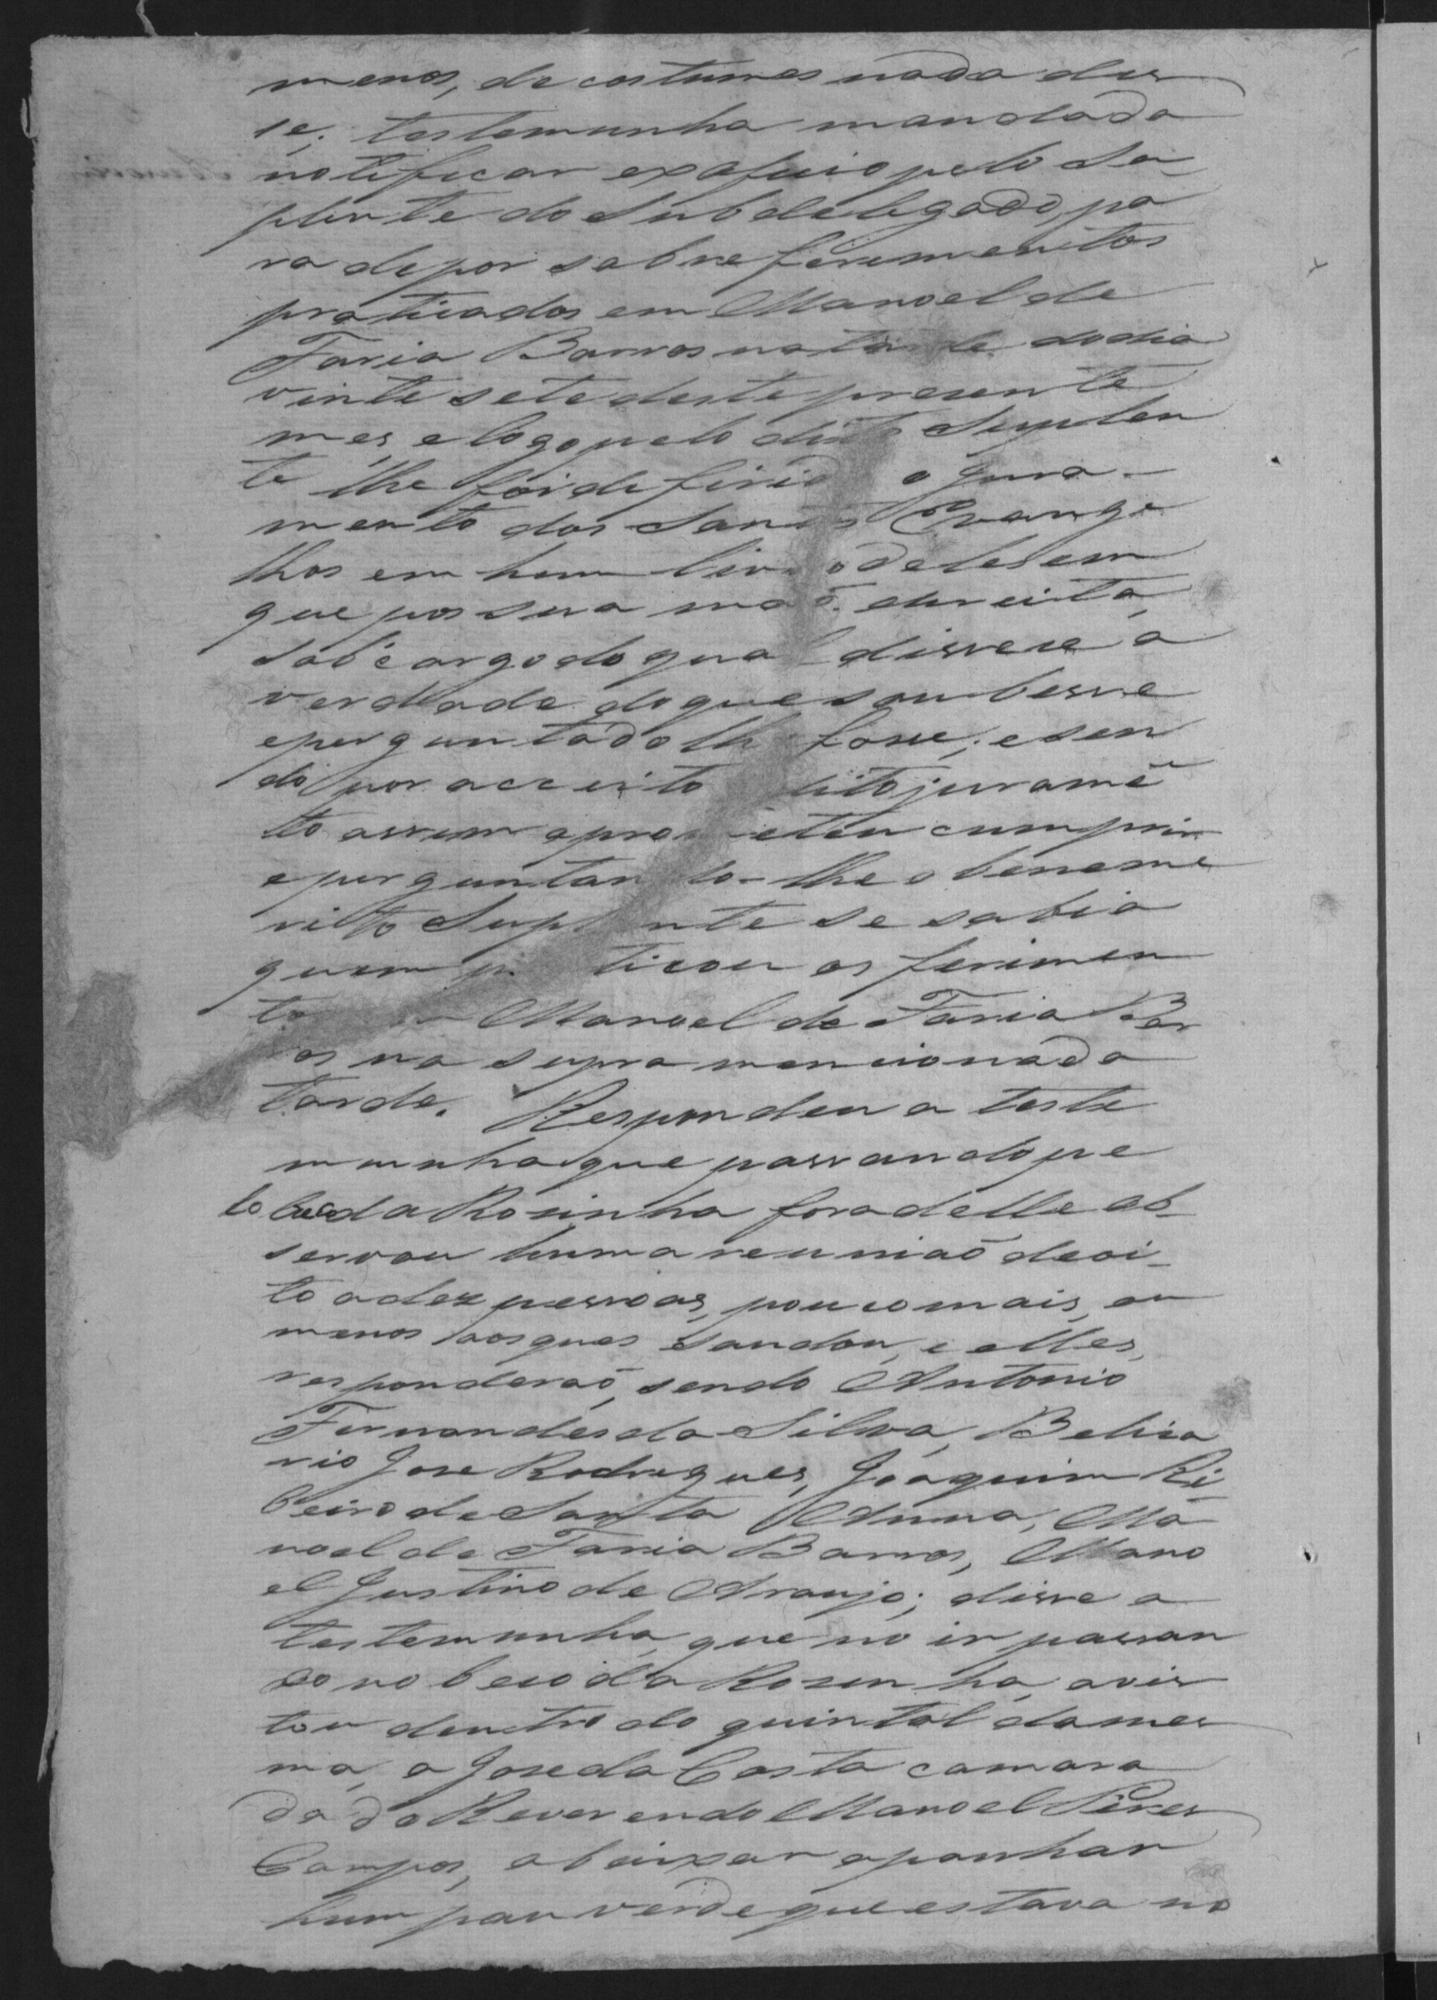 menos, de costumes nada dis
se; testemunha mandada
notificar exoficio pelo Su-
plente do Subdelegado, pa
ra depor sobre ferimentos
praticados em Manoel de
Faria Barros na tarde do dia
vinte sete deste presente
mes, e logo pelo dito Suplen
te lhe foi defirido o jura-
mento dos Santos Evange
lhos em hum livro deles em
que pos sua maõ direita,
sob cargo do qual dissese a
verdade do que soubesse
e perguntado lhe fosse; e sen
do por acceito dito juramē
to assim a prometeu cumprir
e perguntando-lhe o beneme
rito Suplente se sabia
quem praticou os ferimen
tos em Manoel de Faria Bar
ros na supra mencionada
tarde. Respondeu a teste
munha que passando pe
lo beco da Rosinha fora delle ob-
servou huma reuniaõ de oi-
to a dez pessoas, pouco mais, ou
menos aos ques saudou, e elles,
responderaõ, sendo Antonio
Fernandes da Silva, Belisa
rio Jose Rodrigues, Joaquim Ri
beiro de Santa Anna, Ma-
noel de Faria Barros, Mano
el Justino de Araujo; disse a
testemunha, que no ir passan
do no beco da Rosinha, avis
tou dentro do quintal da mes
ma, a Jose da Costa camara
da do Reverendo Manoel Pires
Campos, abaixar apanhar
hum pau verde que estava no